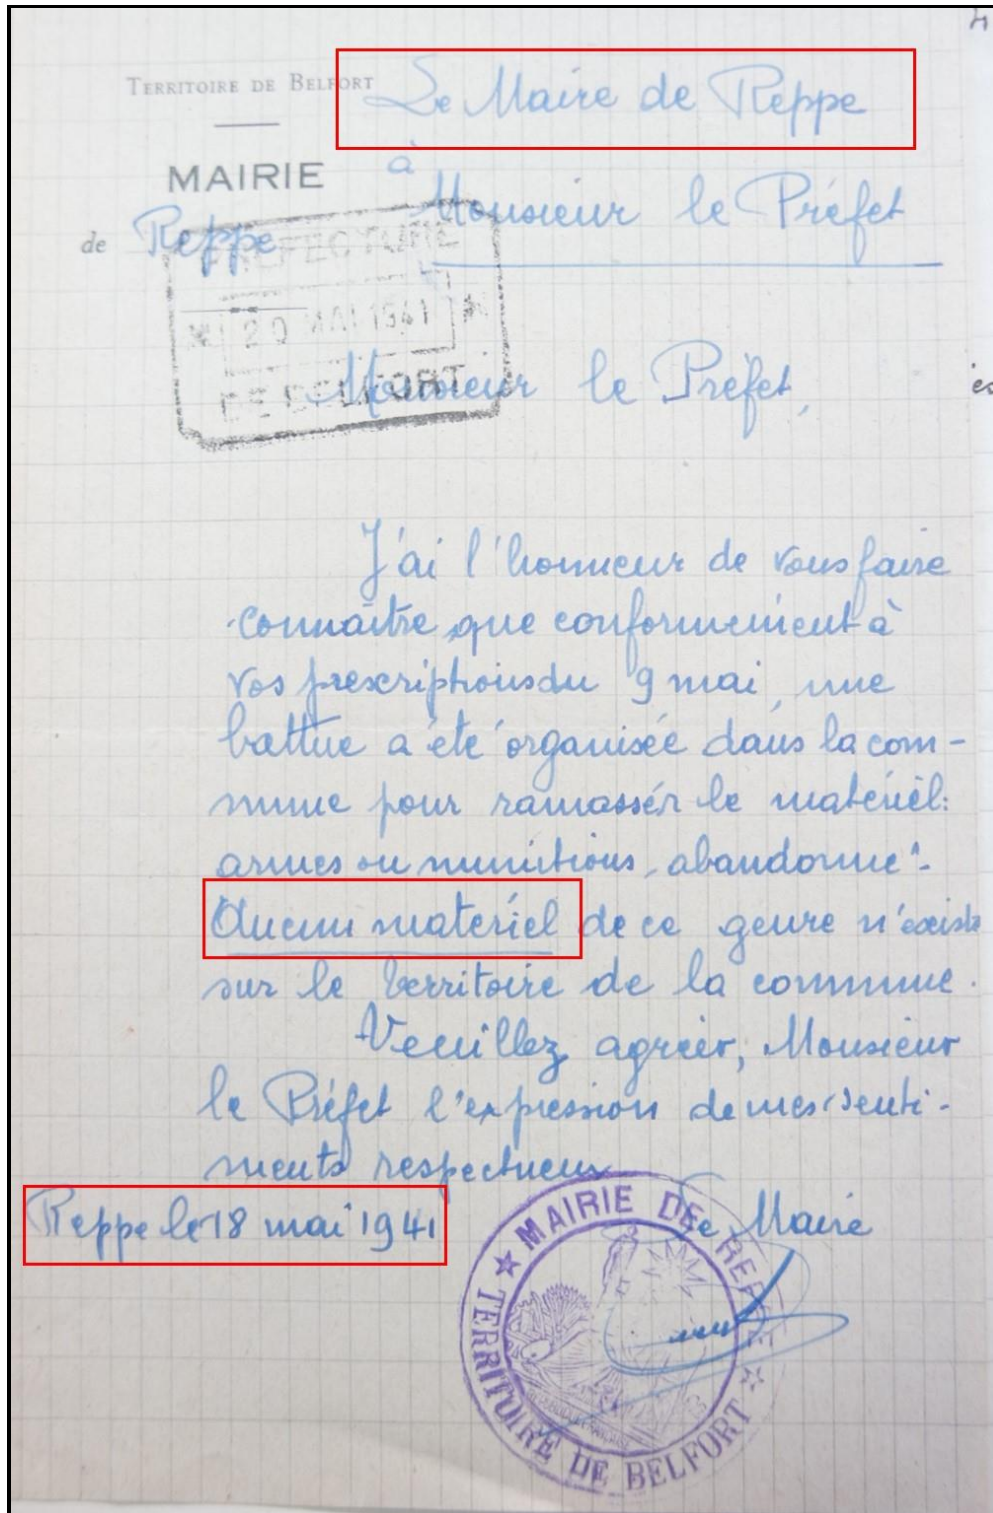 TERRITOIRE DE BELFORT
Le Maire de Reppe
à
MAIRIE
Monsieur le Préfet
de Reppe
PREFECTURE
20 MAI 1941
DE BELFORT
Monsieur le Préfet,
J'ai l'honneur de vous faire
connaître que conformément à
vos prescriptions du 9 mai, une
battue a été organisée dans la com-
mune pour ramasser le matériel:
armes ou munitions, abandonné.
Aucun matériel de ce genre n'existe
sur le territoire de la commune.
Veuillez agréer, Monsieur
le Préfet l'expression de mes senti-
ments respectueux
Reppe le 18 mai 1941
Le Maire
MAIRIE DE REPPE
TERRITOIRE DE BELFORT